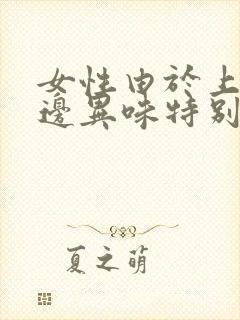 女性由於上
邊異味特別
夏之萌